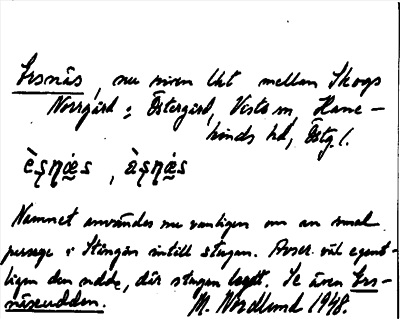 Ersnäs, nu riven lht mellan Skogs
Norrgård o. Östergård, Vists sn, Hane-
kinds hd, Östg. l.
Namnet användes nu vanligen om en smal
passage i Stångån intill stugan. Avser väl egent-
ligen den udde, där stugan legat. Se även Ers-
näsudden. M. Nordlund 1948.